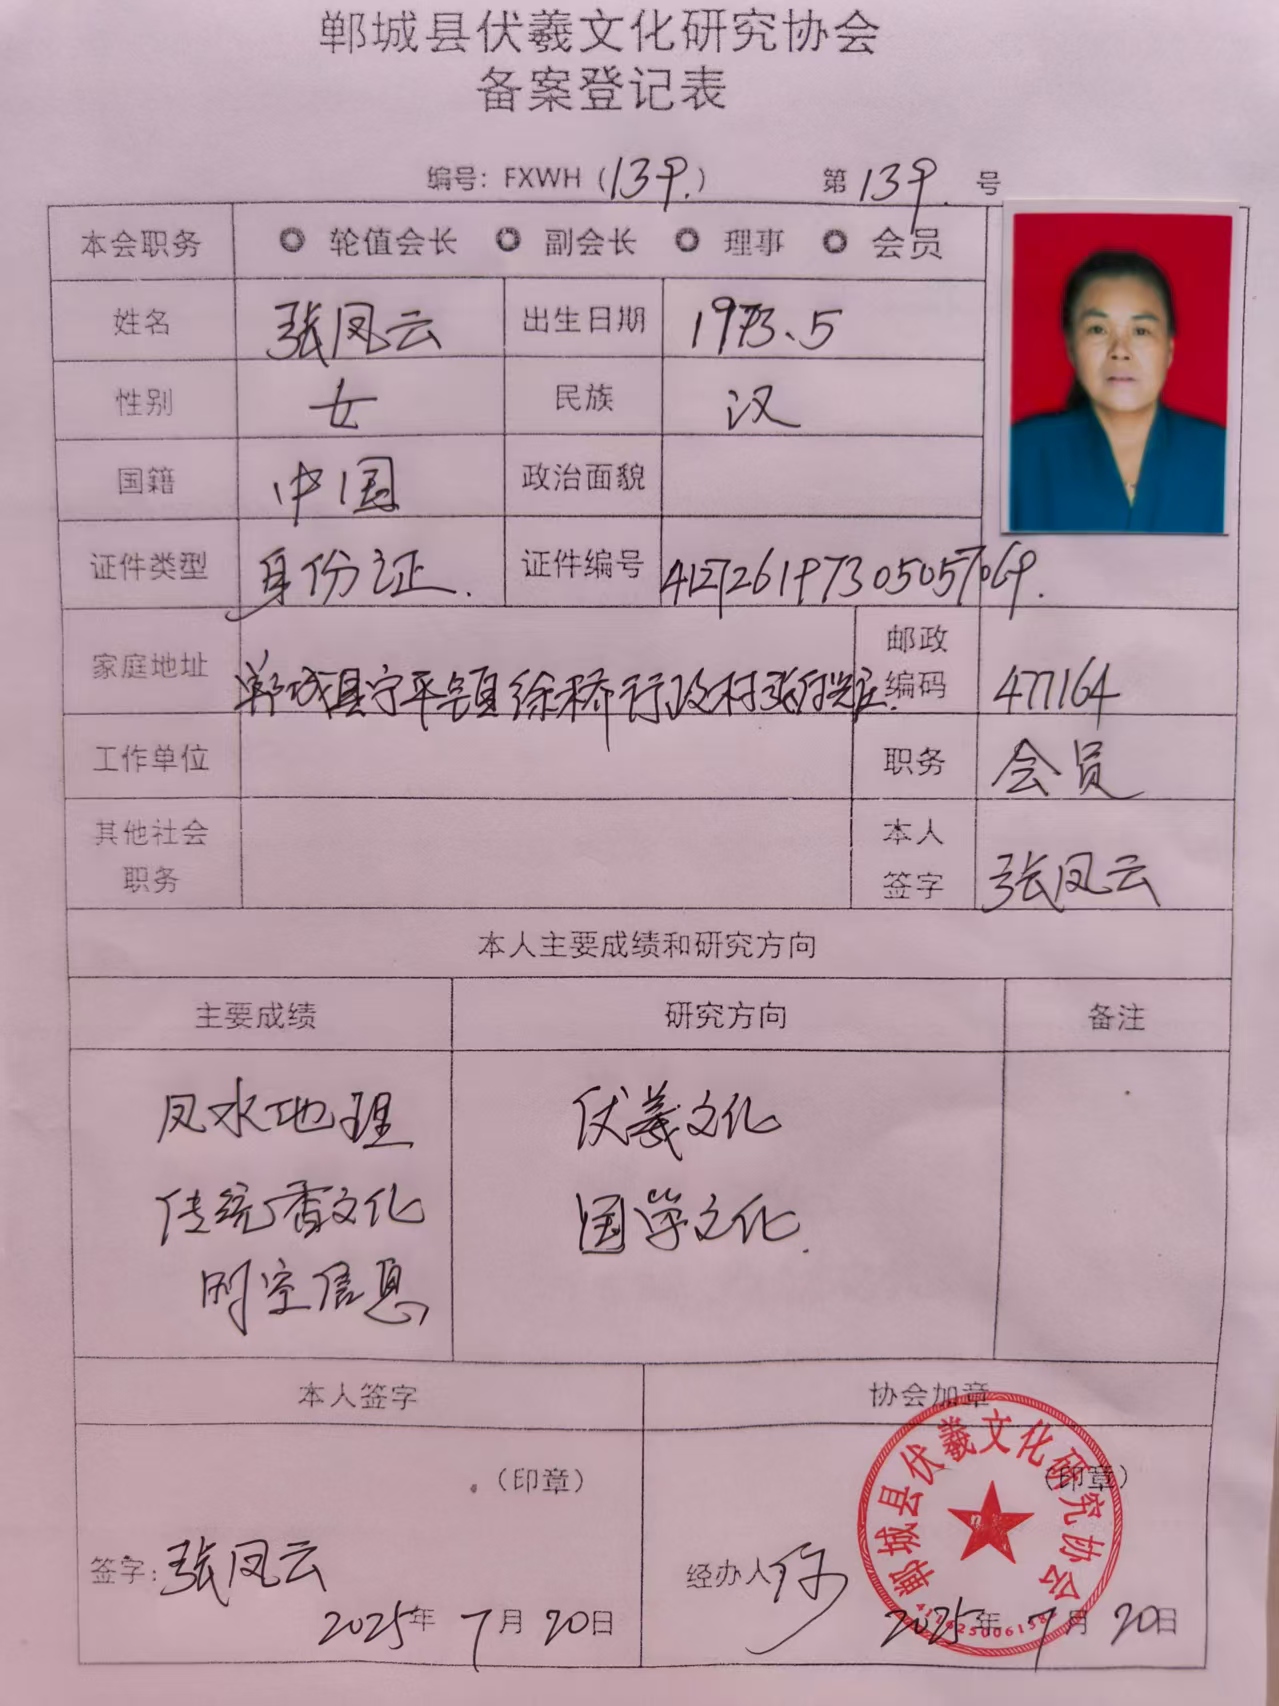 郸城县伏羲文化研究协会
备案登记表
编号：FXWH（139.） 第139.号
本会职务 轮值会长 副会长 理事 会员
姓名 张凤云 出生日期 1973.5
性别 女 民族 汉
国籍 中国 政治面貌
证件类型 身份证. 证件编号 412726197305057069.
家庭地址 郸城县宁平镇徐桥行政村张 邮政编码 477164
工作单位 职务 会员
其他社会职务 本人签字 张凤云
本人主要成绩和研究方向
主要成绩 研究方向 备注
风水地理 伏羲文化
传统香文化 国学文化.
时空信息
本人签字 协会加章
（印章） （印章）
签字：张凤云 经办人
2025年7月20日 2025年7月20日
郸城县伏羲文化研究协会